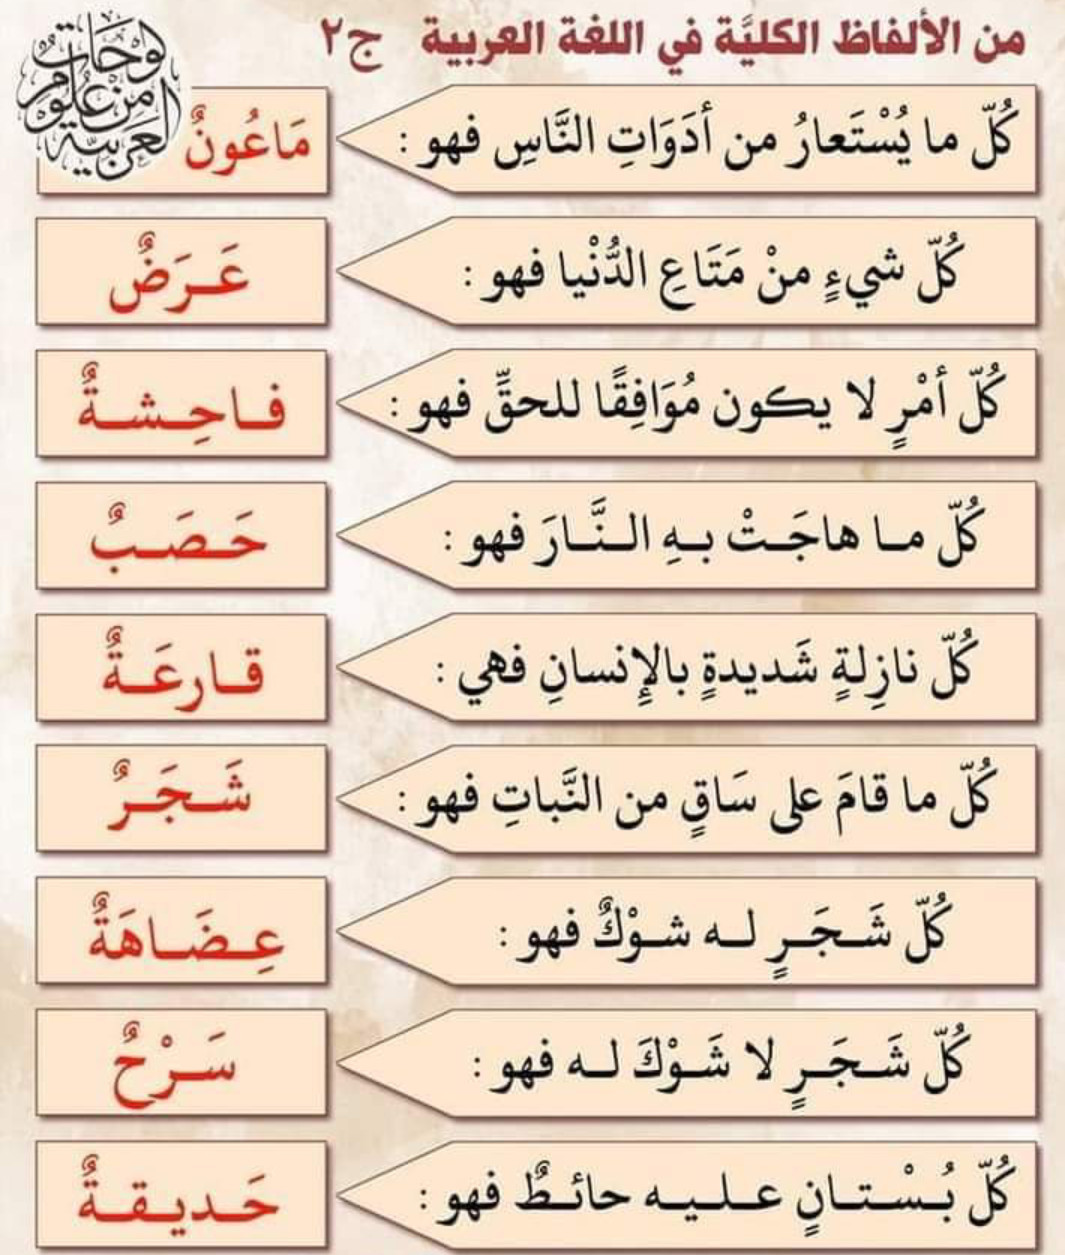 من الألفاظ الكليَّة في اللغة العربية ج٢
لوحات من علوم العربية
كُلّ ما يُسْتَعارُ من أدَوَاتِ النَّاسِ فهو : مَاعُونٌ
كُلّ شيءٍ منْ مَتَاعِ الدُّنْيا فهو : عَرَضٌ
كُلّ أمْرٍ لا يكون مُوَافِقًا للحقِّ فهو : فاحِشةٌ
كُلّ ما هاجَتْ بهِ النَّارَ فهو : حَصَبٌ
كُلّ نازِلةٍ شَديدةٍ بالإِنسانِ فهي : قارعَةٌ
كُلّ ما قامَ على سَاقٍ من النَّباتِ فهو : شَجَرٌ
كُلّ شَجَرٍ له شوْكٌ فهو : عِضَاهَةٌ
كُلّ شَجَرٍ لا شَوْكَ له فهو : سَرْحٌ
كُلّ بُسْتانٍ عليه حائطٌ فهو : حَديقةٌ